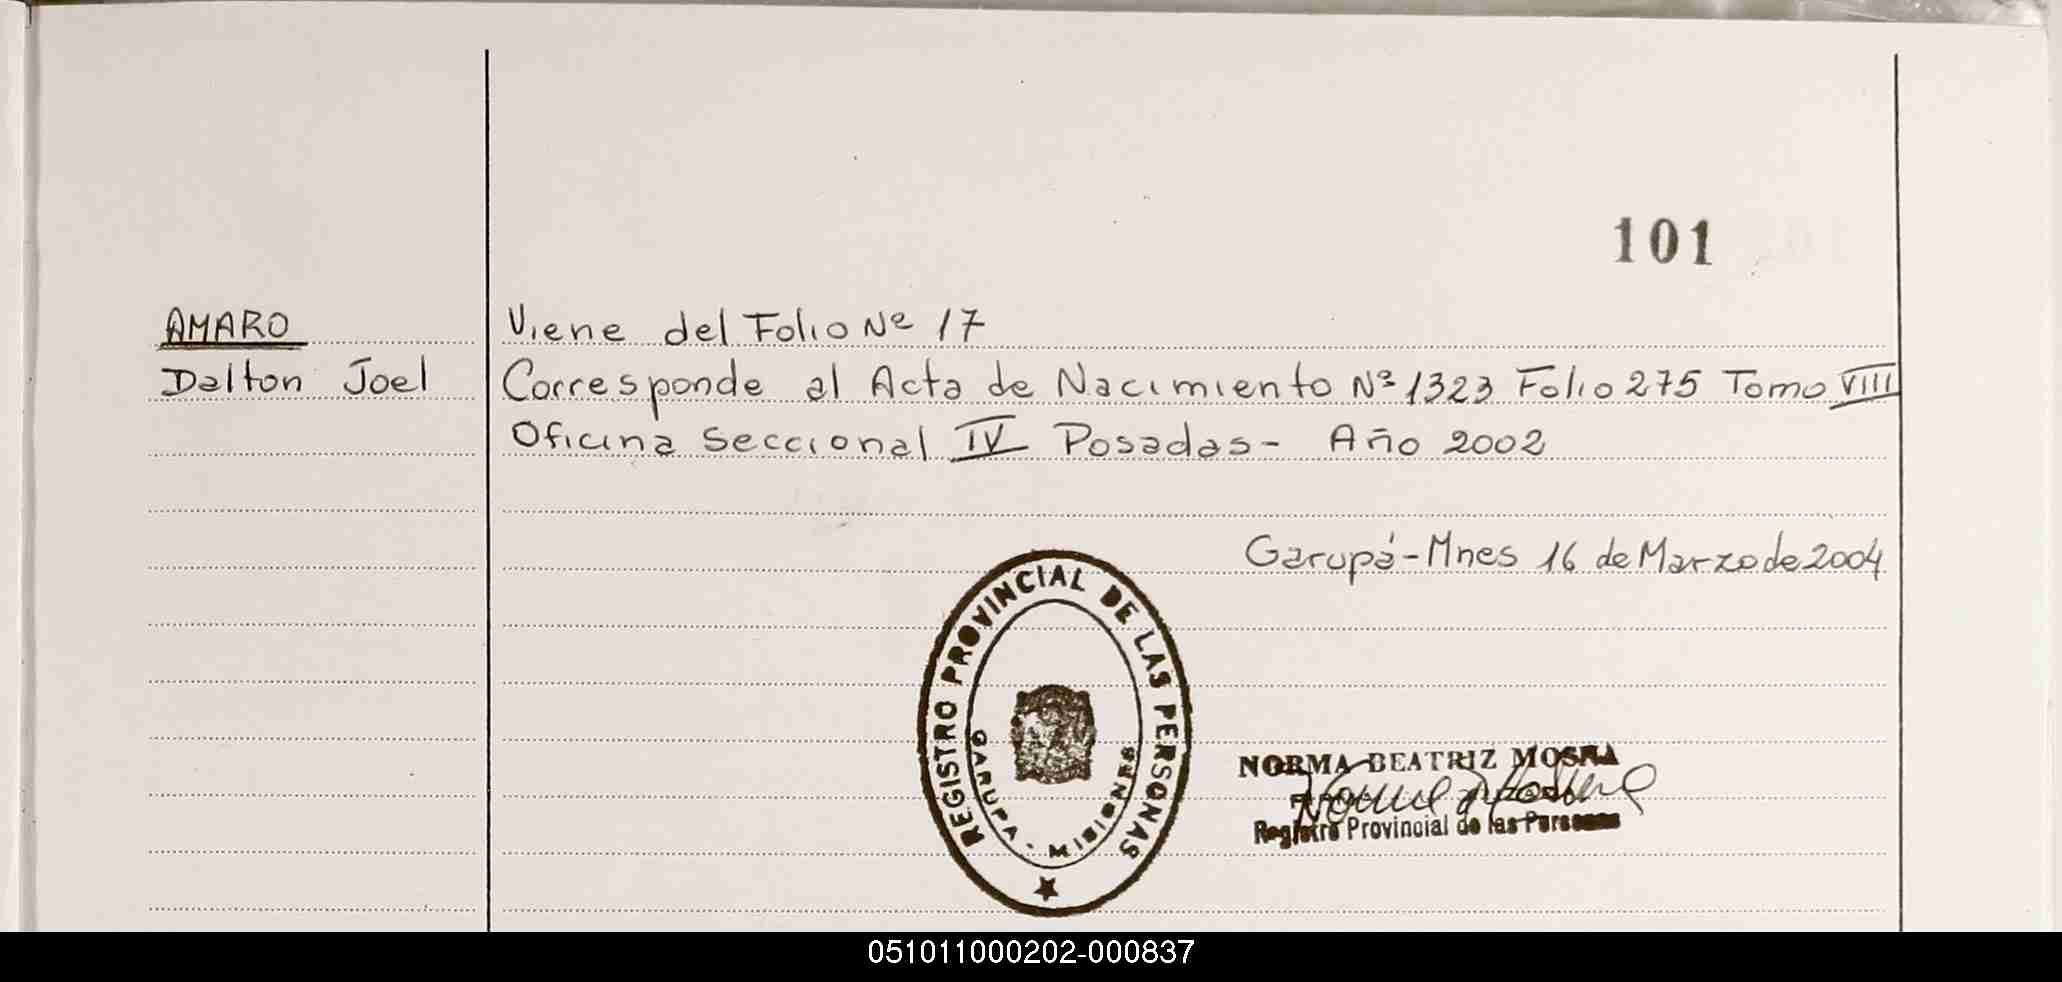 101
AMARO
Dalton Joel
Viene del Folio Nº 17
Corresponde al Acta de Nacimiento Nº 1323 Folio 275 Tomo VIII
Oficina Seccional IV Posadas - Año 2002
Garupá - Mnes 16 de Marzo de 2004
REGISTRO PROVINCIAL DE LAS PERSONAS
GARUPA - MISIONES
NORMA BEATRIZ
Registro Provincial de las Personas
051011000202-000837